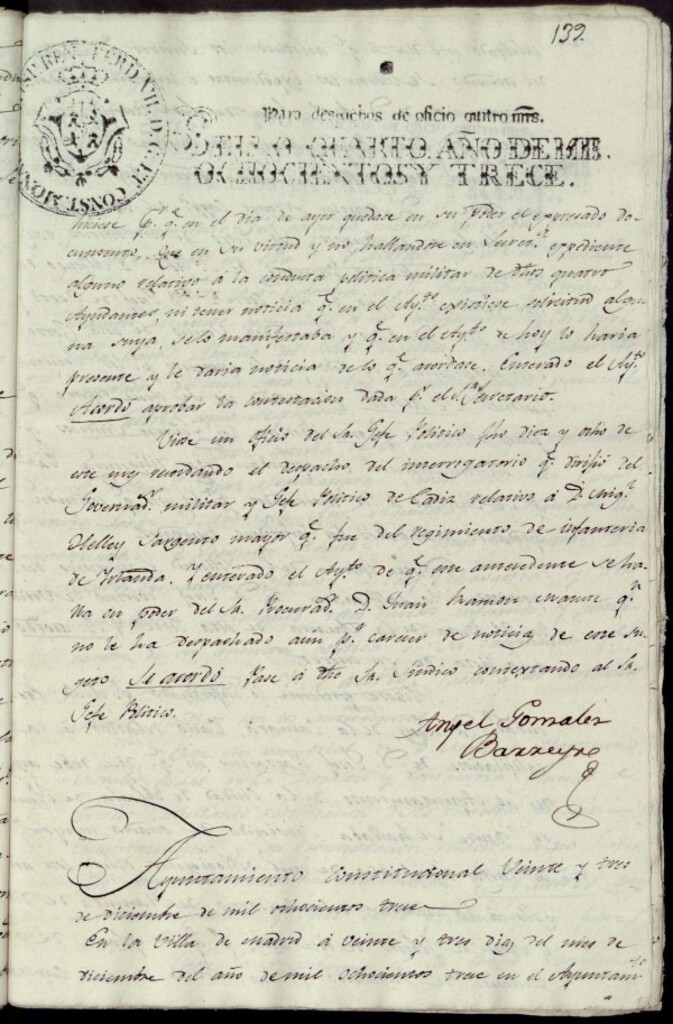 132
HISP. REX. FERD. VII. D. G. ET CONST. MON.
Para despachos de oficio quatro mrs.
SELLO QUARTO, AÑO DE MIL
OCHOCIENTOS Y TRECE.
hiciese p.r q.e en el dia de ayer quedase en su poder el expresado do-
cumento, que en su virtud y no hallandose en Secret.a expediente
alguno relativo á la conducta politica militar de dhos quatro
Ayudantes, ni tener noticia q.e en el Ay.to existiese solicitud algu-
na suya, se lo manifestaba y q.e en el Ay.to de hoy lo haria
presente y le daria noticia de lo q.e acordase. Enterado el Ay.to
Acordó aprobar la contestacion dada p.r el S.r Secretario.
Viose un oficio del Sr. Gefe Politico fho diez y ocho de
este mes recordando el despacho del interrogatorio q.e dirifió del
Governad.r militar y Gefe Politico de Cadiz relativo á D. Mig.l
Kelley Sargento mayor q.e fue del regimiento de infanteria
de Irlanda. Y enterado el Ay.to de q.e este antecedente se ha-
lla en poder del Sr. Procurad.r D. Juan Ramon q.e
no le ha despachado aun p.r carecer de noticias de este su-
geto Se acordó Pase á dho Sr. Sindico contextando al Sr.
Gefe Politico.
Angel Gonzalez
Barreyro
Ayuntamiento Constitucional Veinte y tres
de diciembre de mil ochocientos trece
En la Villa de Madrid á veinte y tres dias del mes de
diciembre del año de mil ochocientos trece en el Ayuntam.to